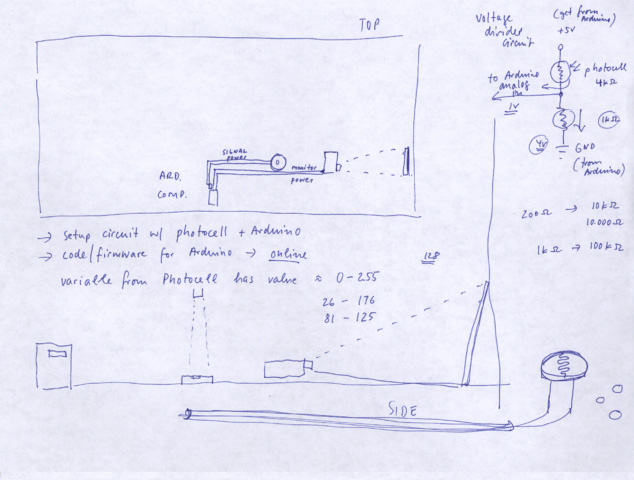 TOP
voltage
divider
circuit
(get from
Arduino)
+5V
photocell
4kΩ
to Arduino
analog
in
1V
1kΩ
4V
GND
(from
Arduino)
SIGNAL
POWER
monitor
power
ARD.
COMP.
200Ω → 10kΩ
10.000Ω
1kΩ → 100kΩ
→ Setup circuit w/ photocell + Arduino
→ code/firmware for Arduino → online
128
variable from Photocell has value ≈ 0-255
26 - 176
81 - 125
SIDE